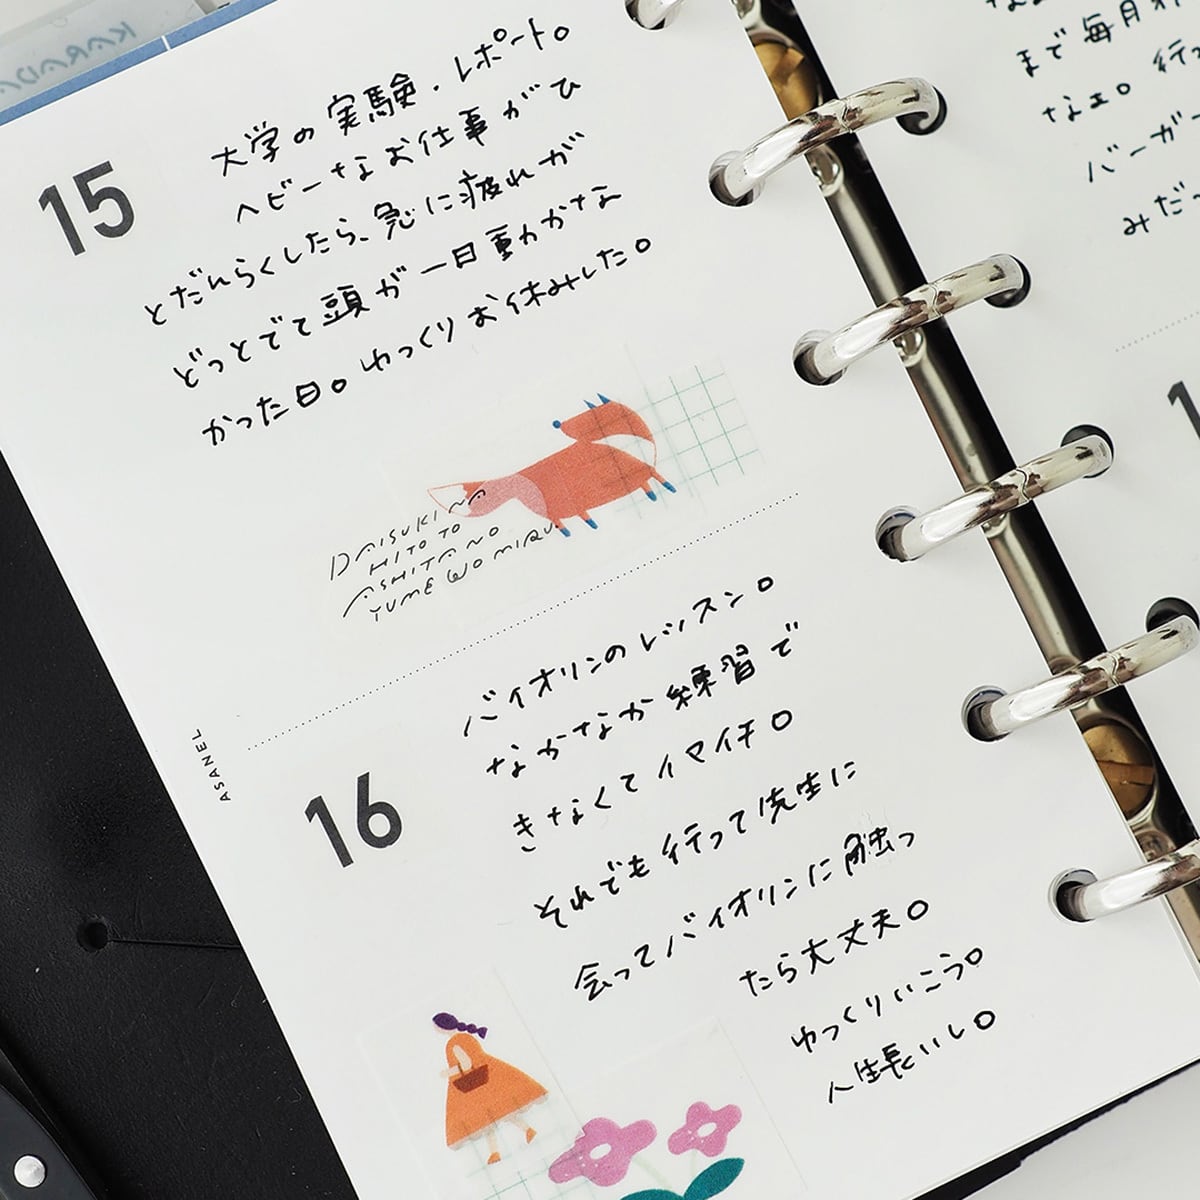 15
大学の実験・レポート。
ヘビーなお仕事がひ
とだんらくしたら、急に疲れが
どっとでて頭が一日動かな
かった日。ゆっくりお休みした。
DAISUKI NA
HITO TO
ASHITA NO
YUME WO MIRU.
ASANEL
16
バイオリンのレッスン。
なかなか練習で
きなくてイマイチ。
それでも行って先生に
会ってバイオリンに触っ
たら大丈夫。
ゆっくりいこう。
人生長いし。
まで毎月
なェ。行っ
バーガー
みだっ
1
KARADA